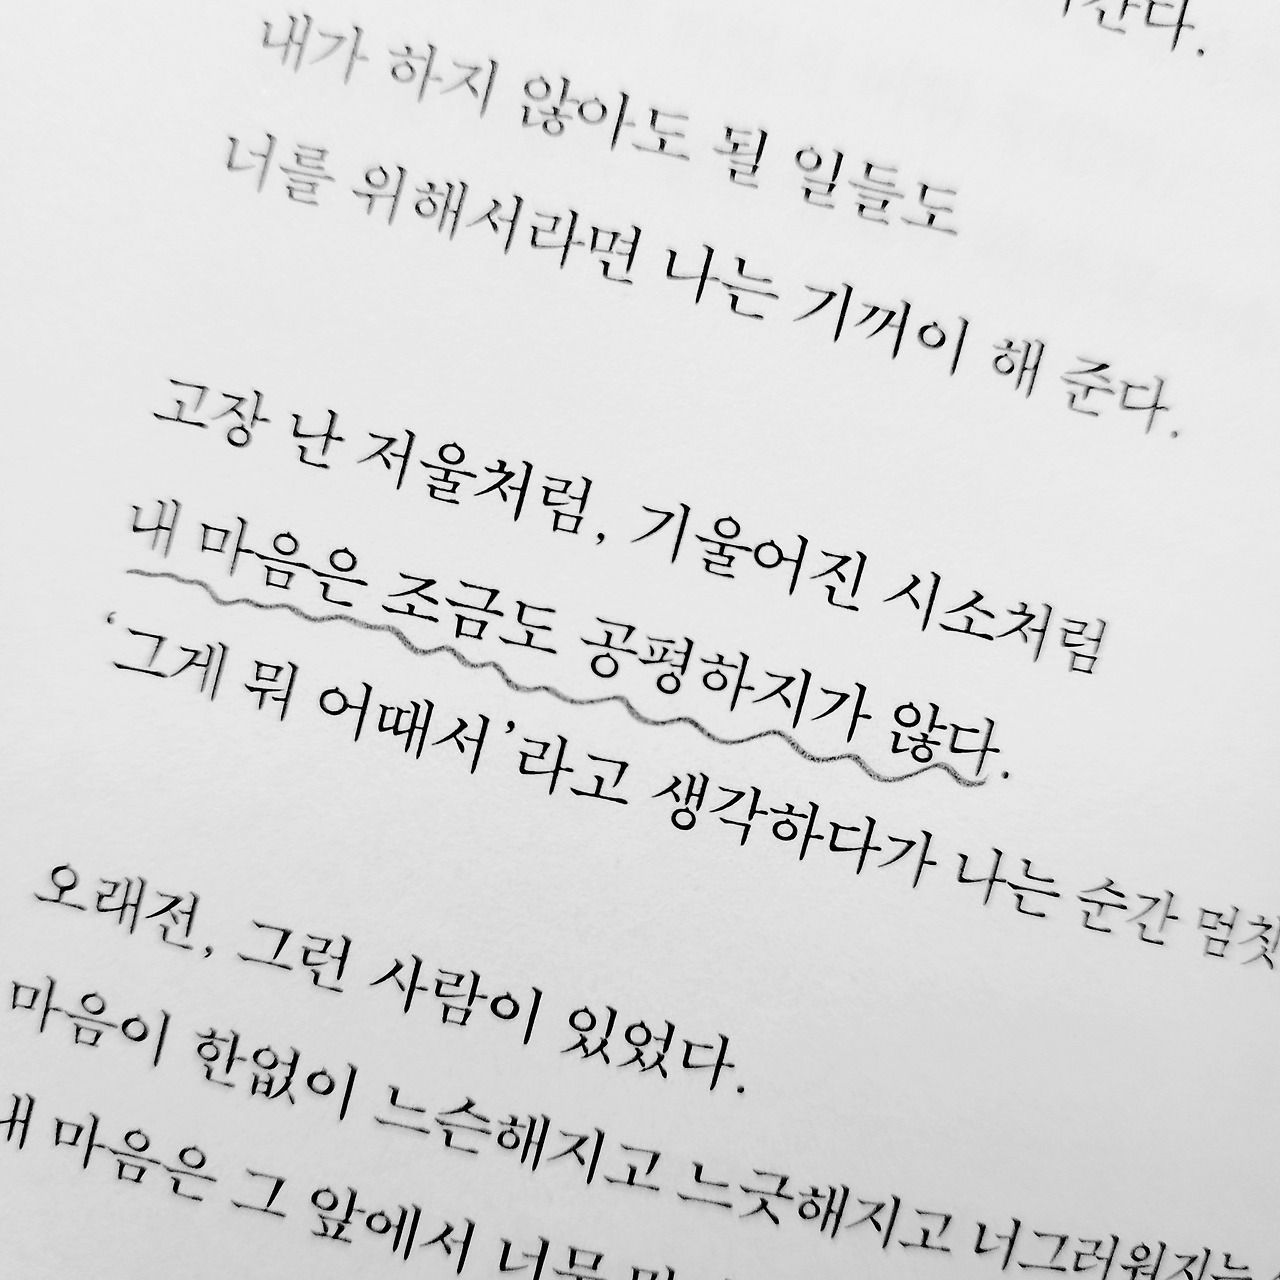 내가 하지 않아도 될 일들도
너를 위해서라면 나는 기꺼이 해 준다.
고장 난 저울처럼, 기울어진 시소처럼
내 마음은 조금도 공평하지가 않다.
‘그게 뭐 어때서’라고 생각하다가 나는 순간 멈칫
오래전, 그런 사람이 있었다.
마음이 한없이 느슨해지고 느긋해지고 너그러워지는
내 마음은 그 앞에서 너무